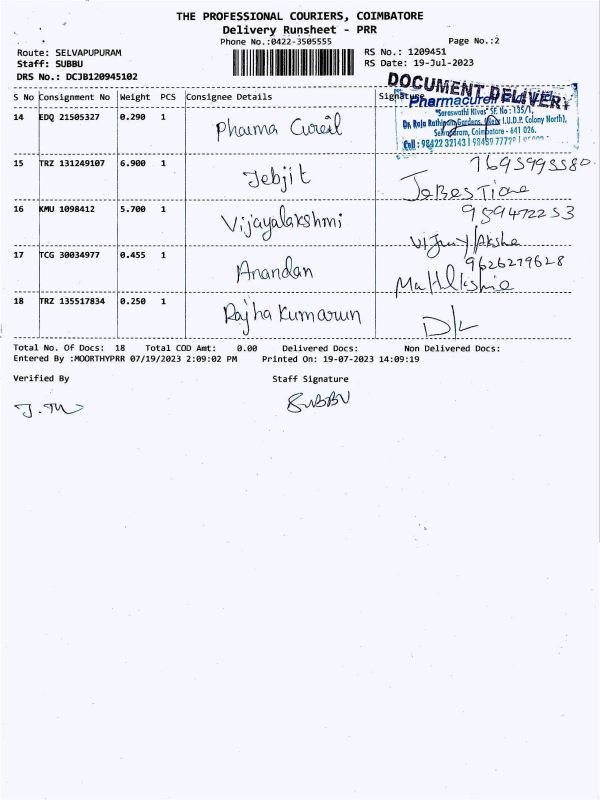 THE PROFESSIONAL COURIERS, COIMBATORE
Delivery Runsheet - PRR
Phone No.:0422-3505555 Page No.:2
Route: SELVAPUPURAM RS No.: 1209451
Staff: SUBBU RS Date: 19-Jul-2023
DRS No.: DCJB120945102
DOCUMENT DELIVERY
S No Consignment No Weight PCS Consignee Details Signature
"Saraswathi Nivas" SF. No : 135/1,
I.U.D.P. Colony North),
Coimbatore - 641 026.
Cell : 98422 32143
14 EDQ 21505327 0.290 1 Pharma
15 TRZ 131249107 6.900 1 Jebjit
16 KMU 1098412 5.700 1 Vijayalakshmi
17 TCG 30034977 0.455 1 Anandan
9626279628
18 TRZ 135517834 0.250 1
Total No. Of Docs: 18 Total COD Amt: 0.00 Delivered Docs: Non Delivered Docs:
Entered By :MOORTHYPRR 07/19/2023 2:09:02 PM Printed On: 19-07-2023 14:09:19
Verified By Staff Signature
SUBBU